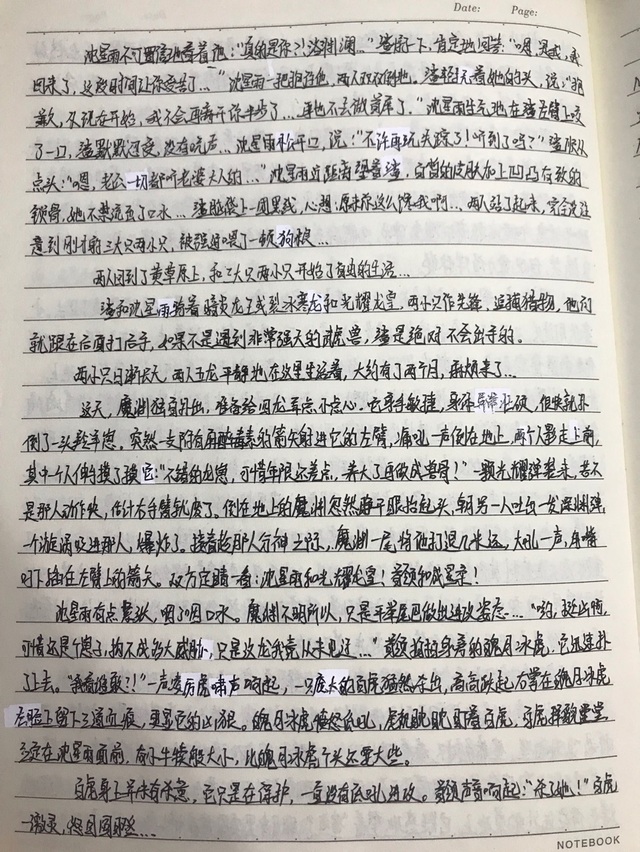 Date: Page:
沈星雨不可置信地看着他:"真的是你?!洛渊澜…"渣龙一下,肯定地回答:"嗯,是我,我
回来了,这段时间让你受苦了…"沈星雨一把抱住他,两人双双倒地。渣轻抚着她的头,说:"抱
歉,从现在开始,我不会再离开你半步了…再也不去做首席了."沈星雨生气地在渣左臂上咬
了一口,渣默默承受,没有吭声…沈星雨松开口,说:"不许再玩失踪了!听到了吗?"渣
点头:"嗯,老公一切都听老婆大人的…"沈星雨近距离望着渣,白皙的皮肤加上凹凸有致的
锁骨,她不禁流出了口水…渣脑袋上一团黑线,心想:原来你这么馋我啊…两人站了起来,完全没注
意到刚才的三大只两小只,被强迫喂了一顿狗粮…
两人回到了黄草原上,和三大只两小只开始了自由的生活…
渣和沈星雨骑着暗夜龙王或裂冰寒龙和光耀龙皇,两小只作先锋,追捕猎物,他们
就跟在后面打后手,如果不是遇到非常强大的魂兽,渣是绝对不会出手的。
两小只日渐状大,两人五龙平静地在这里生活着,大约有了两个月,麻烦来了…
这天,魔渊独自外出,准备给四龙弄点小点心。它身手敏捷,身体异常壮硕,很快就扑
倒了一头羚羊崽。突然一支附有麻醉毒素的箭矢射进它的左臂,痛吼一声倒在地上,两个人影走上前,
其中一个人伸手摸了摸它:"不错的龙崽,可惜年限还差点,养大了再做成兽骨!"一颗光耀弹袭来,若不
是那人动作快,估计右手臂就废了。倒在地上的魔渊忽然睁开眼抬起头,朝另一人吐出一发深渊弹,
一个漩涡吸进那人,爆炸了。接着趁那人分神之际,魔渊一尾将他打退几米远,大吼一声,用嘴
叼下插在左臂上的箭矢。双方定睛一看:沈星雨和光耀龙皇!
沈星雨有点震惊,咽了咽口水。魔渊不明所以,只是平举尾巴做出进攻姿态…"哟,挺凶啊,
可惜还是个崽子,构不成多大威胁,只是这龙我竟从未见过…"拍拍身旁的魂月冰虎,它迅速扑
了上去。"我看谁敢?!"一声凌厉虎啸声响起,一只庞大的白虎猛然杀出,高高跃起右掌在魂月冰虎
左脸上留下三道血痕,更显它的凶狠。魂月冰虎愤怒低吼,虎视眈眈盯着白虎,白虎
立定在沈星雨面前,有小牛犊般大小,比魂月冰虎个头还要大些。
白虎身上并未有杀意,它只是在保护,一直没有低吼进攻。声音响起:"杀了她!"白虎
一激灵,
NOTEBOOK